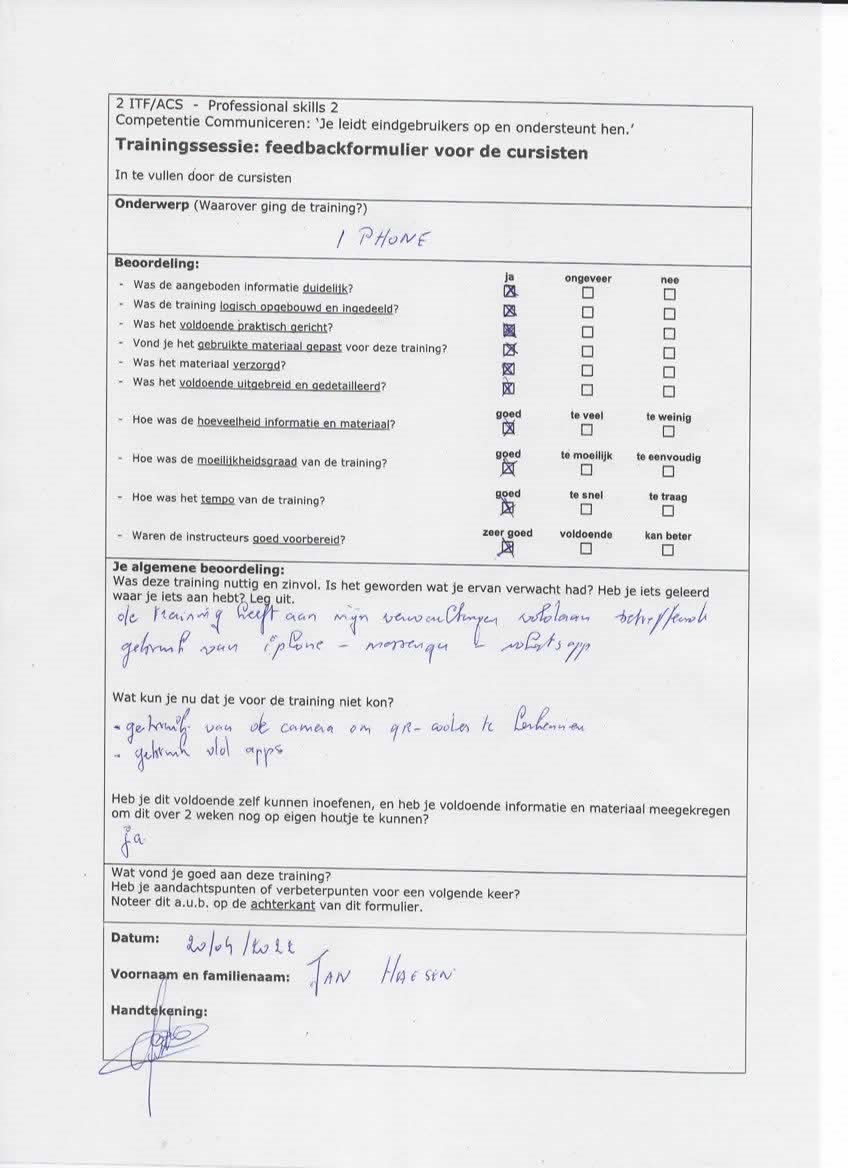 2 ITF/ACS - Professional skills 2
Competentie Communiceren: ‘Je leidt eindgebruikers op en ondersteunt hen.’
Trainingssessie: feedbackformulier voor de cursisten
In te vullen door de cursisten
Onderwerp (Waarover ging de training?)
I PHONE
Beoordeling:
ja ongeveer nee
- Was de aangeboden informatie duidelijk? ☒ ☐ ☐
- Was de training logisch opgebouwd en ingedeeld? ☒ ☐ ☐
- Was het voldoende praktisch gericht? ☒ ☐ ☐
- Vond je het gebruikte materiaal gepast voor deze training? ☒ ☐ ☐
- Was het materiaal verzorgd? ☒ ☐ ☐
- Was het voldoende uitgebreid en gedetailleerd? ☒ ☐ ☐
goed te veel te weinig
- Hoe was de hoeveelheid informatie en materiaal? ☒ ☐ ☐
goed te moeilijk te eenvoudig
- Hoe was de moeilijkheidsgraad van de training? ☒ ☐ ☐
goed te snel te traag
- Hoe was het tempo van de training? ☒ ☐ ☐
zeer goed voldoende kan beter
- Waren de instructeurs goed voorbereid? ☒ ☐ ☐
Je algemene beoordeling:
Was deze training nuttig en zinvol. Is het geworden wat je ervan verwacht had? Heb je iets geleerd
waar je iets aan hebt? Leg uit.
de training heeft aan mijn verwachtingen voldaan betreffende
gebruik van iphone - messenger & whatsapp
Wat kun je nu dat je voor de training niet kon?
- gebruik van de camera om QR-codes te herkennen
- gebruik vld apps
Heb je dit voldoende zelf kunnen inoefenen, en heb je voldoende informatie en materiaal meegekregen
om dit over 2 weken nog op eigen houtje te kunnen?
ja
Wat vond je goed aan deze training?
Heb je aandachtspunten of verbeterpunten voor een volgende keer?
Noteer dit a.u.b. op de achterkant van dit formulier.
Datum: 20/04/2022
Voornaam en familienaam: JAN HAESEN
Handtekening: